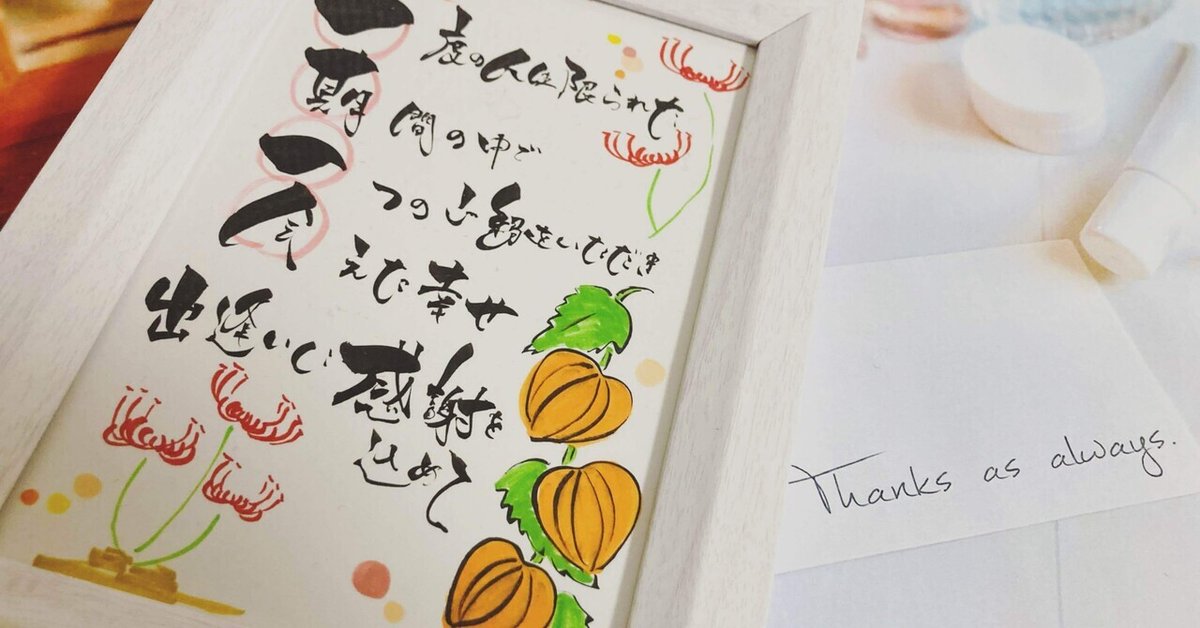 一度の人生限られた
期間の中で
一つのご縁をいただき
会えた幸せ
出逢いに感謝を
込めて
Thanks as always.